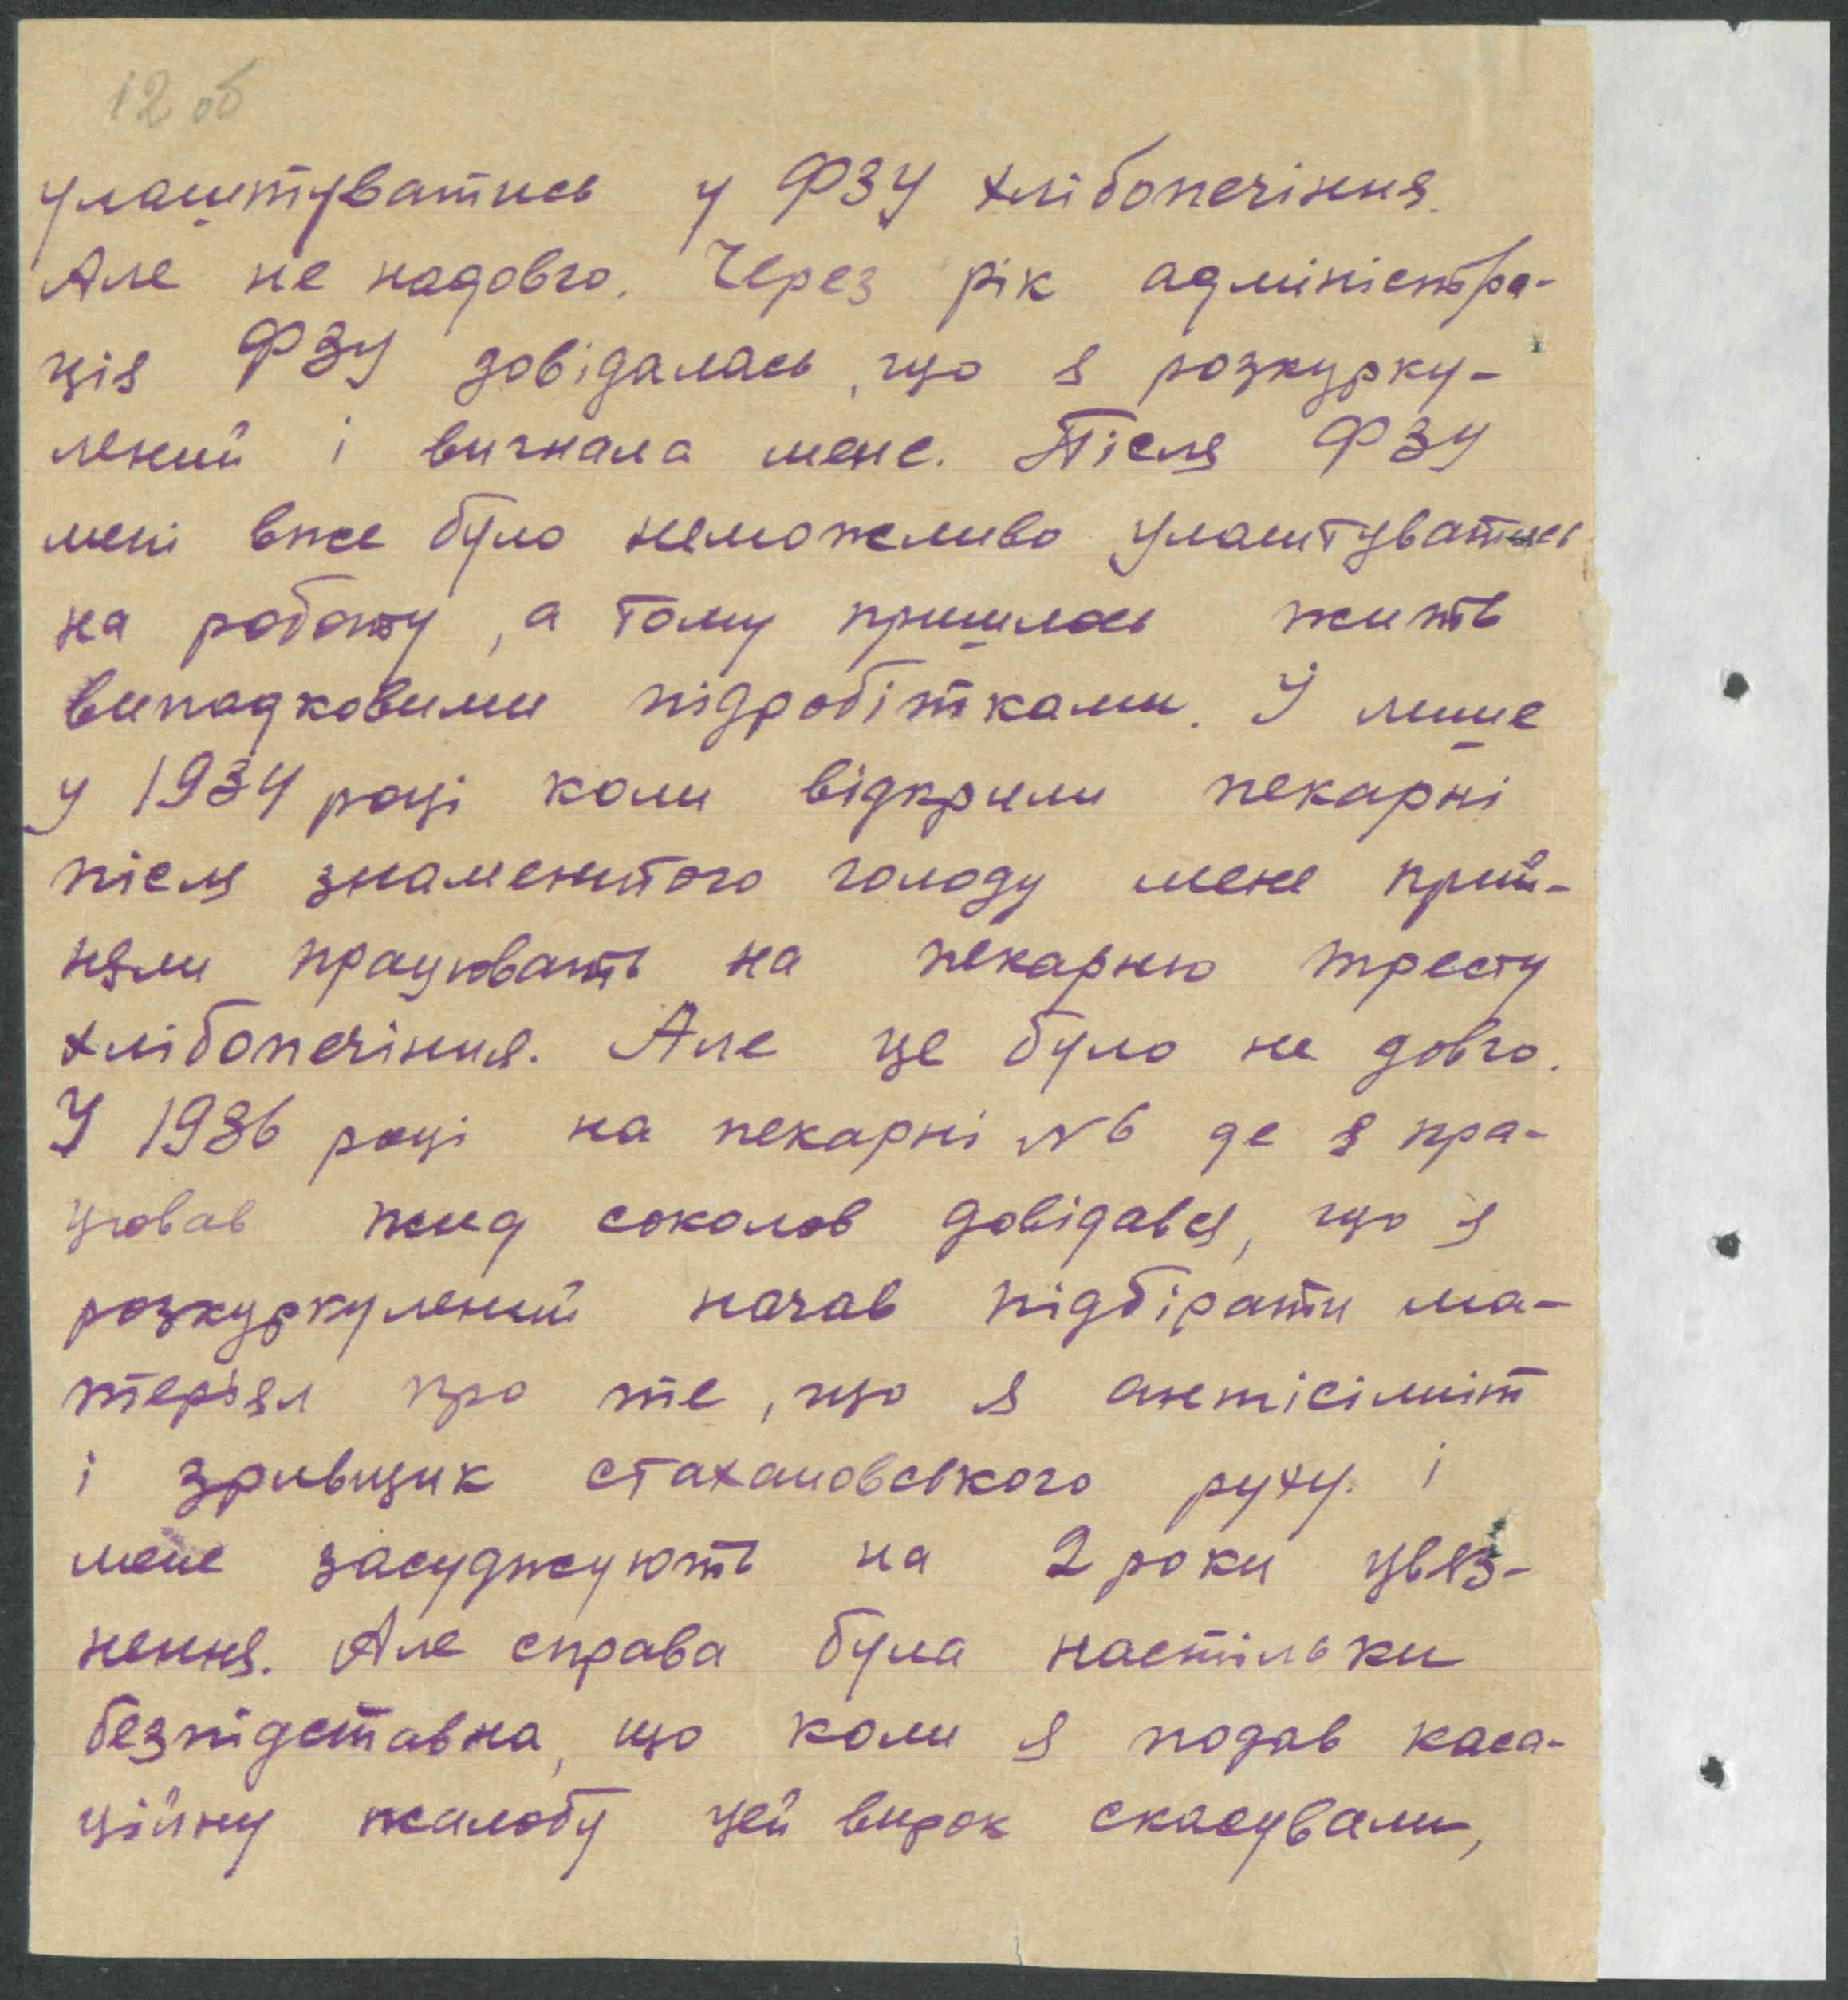 12 об
улаштуватись у ФЗУ хлібопечіння.
Але не надовго. Через рік адміністра-
ція ФЗУ довідалась, що я розкурку-
лений і вигнала мене. Після ФЗУ
мені вже було неможливо улаштуватись
на роботу, а тому пришлось жить
випадковими підробітками. І лише
у 1934 році коли відкрили пекарні
після знаменитого голоду мене прий-
няли працювать на пекарню тресту
хлібопечіння. Але це було не довго.
У 1936 році на пекарні №6 де я пра-
цював жид соколов довідався, що я
розкуркулений начав підбірати ма-
теріял про те, що я антісіміт
і зривщик стахановського руху. і
мене засуджують на 2 роки увяз-
нення. Але справа була настільки
безпідставна, що коли я подав каса-
ційну жалобу цей вирок скасували,